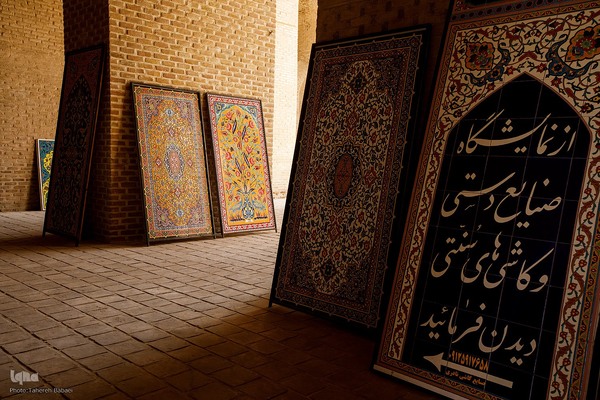 از نمایشگاه
صنایع دستی
و کاشی های سنتی
دیدن فرمائید
۰۹۱۲۵۹۱۷۶۵۸
iqna
Photo:Tahereh Babaei